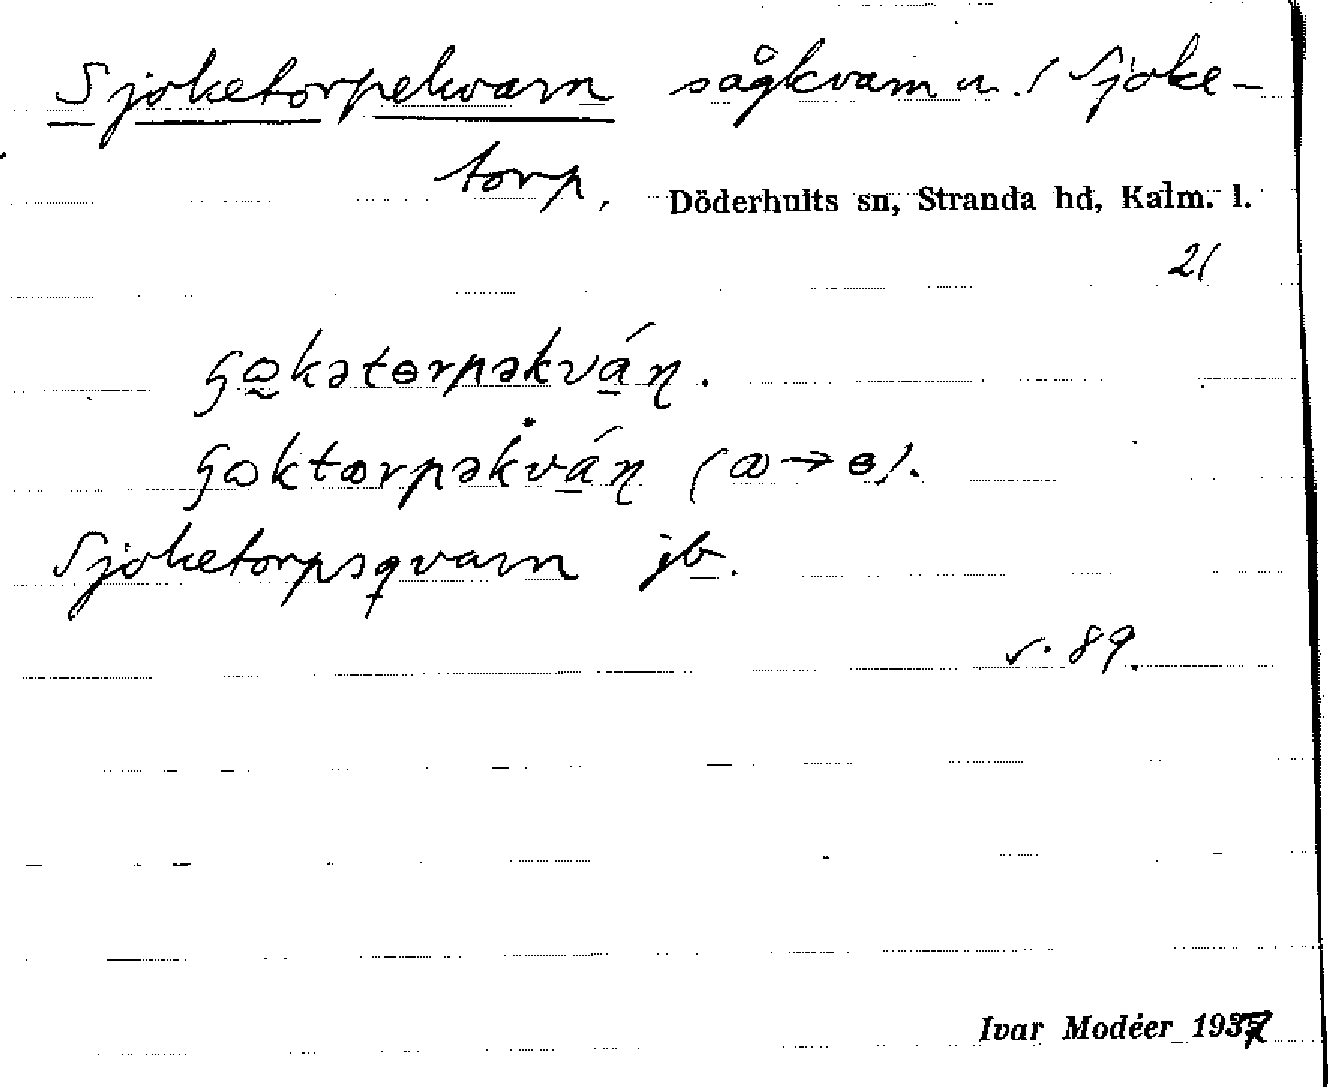 Sjöketorpekvarn sågkvarn u. / Sjöke-
torp, Döderhults sn, Stranda hd, Kalm. l.
21
Sjöketorpsqvarn jb.
s. 89.
Ivar Modéer 1937